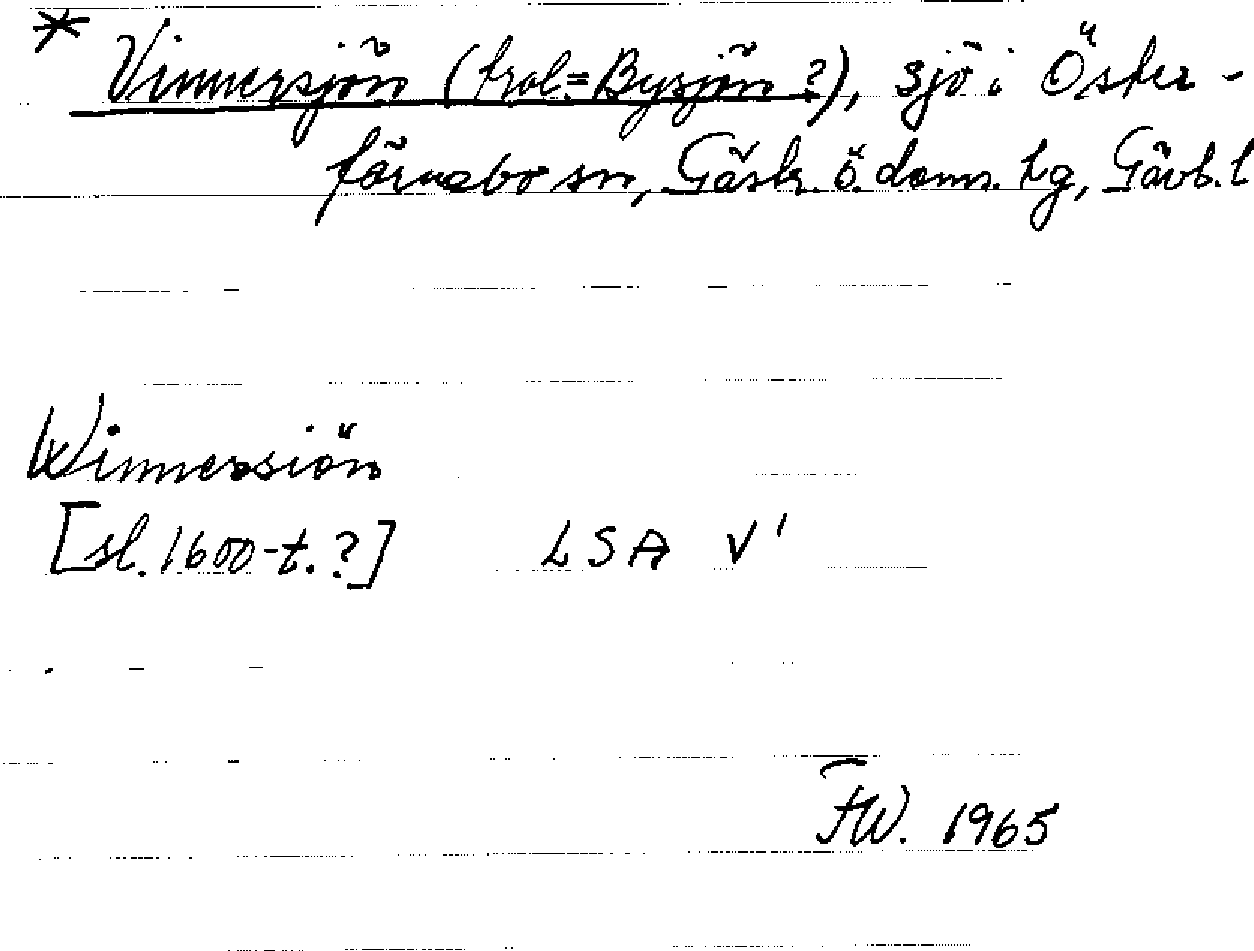 * Vinnersjön (trol.=Bysjön?), sjö i Öster-
färnebo sn, Gästr. ö. doms. tg, Gävb. l
Winnersiön
[sl. 1600-t.?] LSA V'
FW. 1965